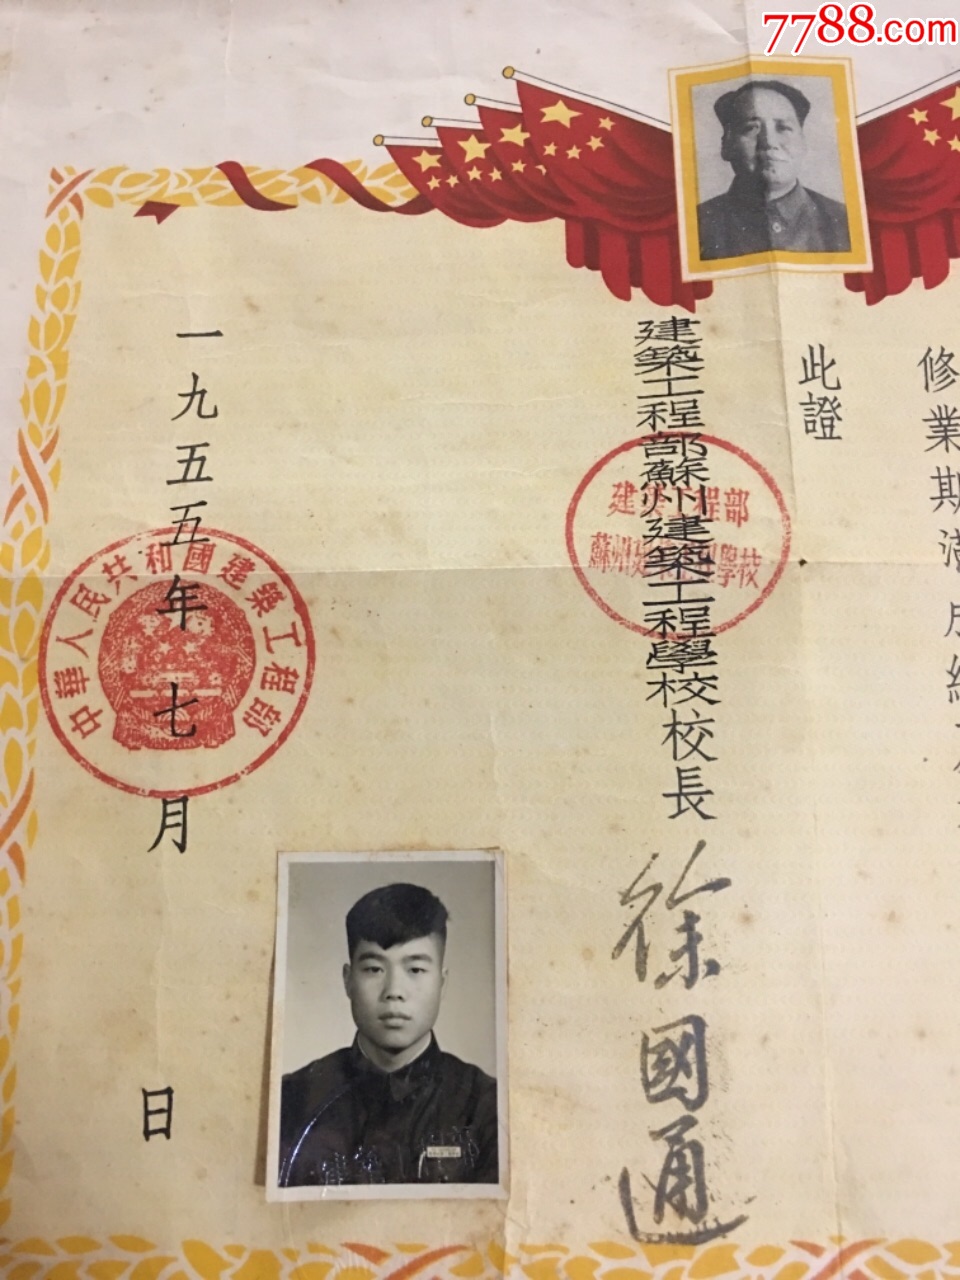 7788.com
修業期滿成績
此證
建築工程部蘇州建築工程學校校長 徐國通
建築工程部
蘇州建築工程學校
一九五五年七月 日
中華人民共和國建築工程部